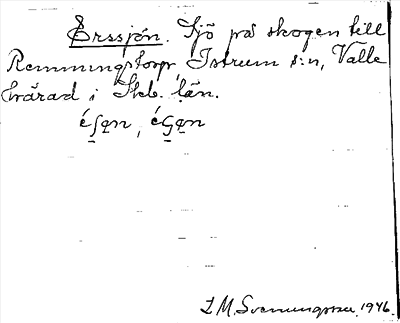 Erssjön. Sjö på skogen till
Remmingstorp, Istrum s:n, Valle
härad i Skb. län.
é̱ʃən, é̱ʂən
L M Svenungsson. 1946.